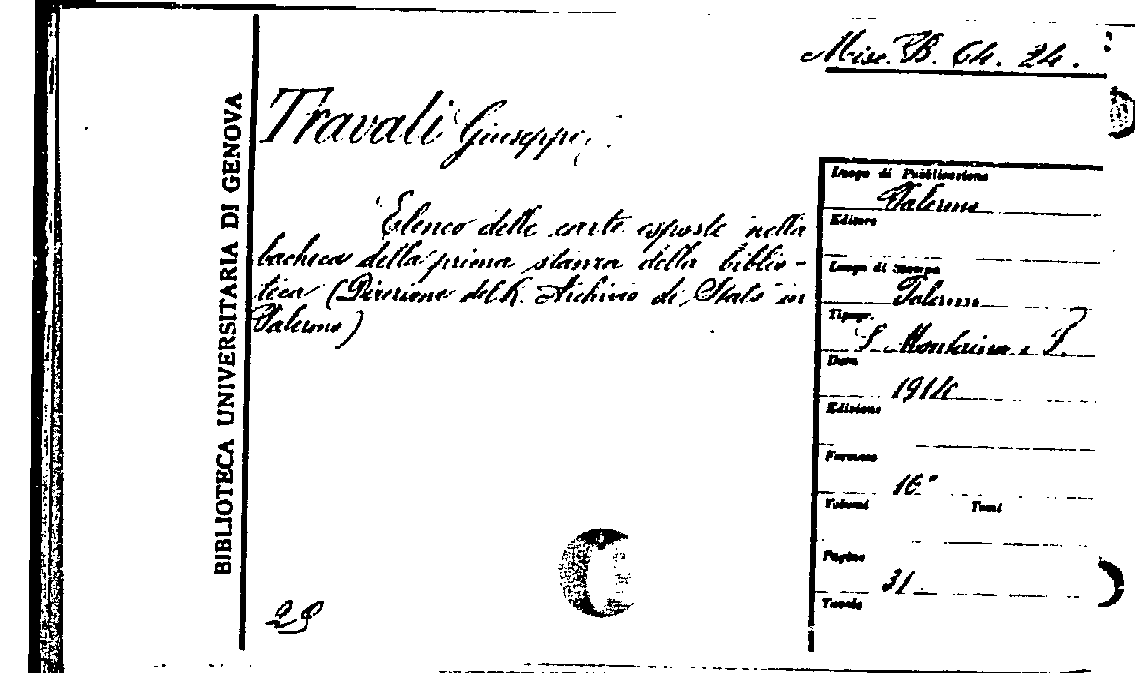 Misc. B. 64. 24.
BIBLIOTECA UNIVERSITARIA DI GENOVA
Travali Giuseppe
Elenco delle carte esposte nella
bacheca della prima stanza della biblio-
teca (Direzione del R. Archivio di Stato in
Palermo)
29
Luogo di Pubblicazione
Palermo
Editore
Luogo di stampa
Palermo
Tipogr.
S. Montaina e
Data
Edizione
Formato
16°
Volumi Tomi
Pagine
31
Tavole